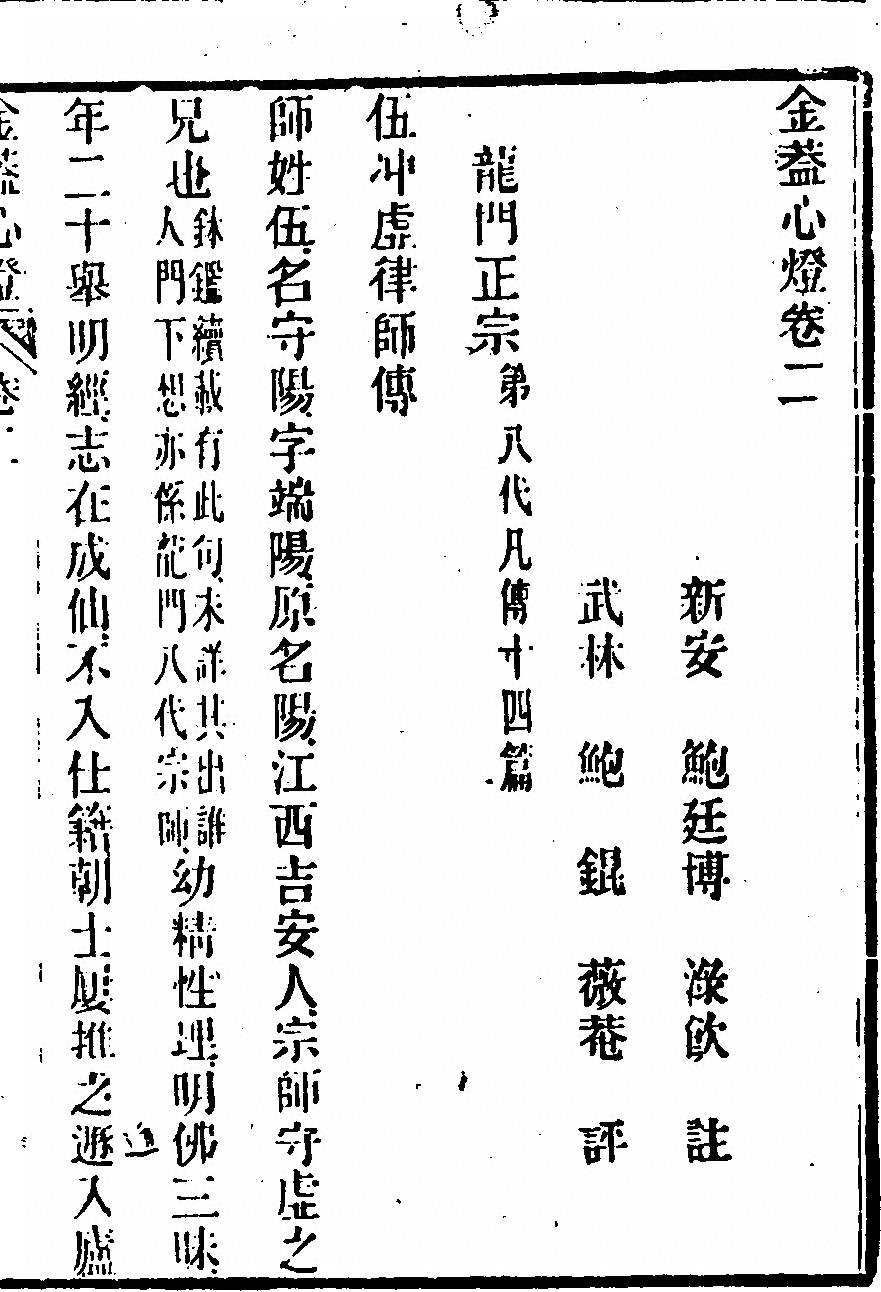 金葢心燈卷二
新安 鮑廷博 淥飲 註
武林 鮑 錕 薇菴 評
龍門正宗 第八代凡傳十四篇
伍冲虛律師傳
師姓伍名守陽字端陽原名陽江西吉安人宗師守虛之
兄也 鉢鑑續載有此句未詳其出誰人門下想亦係龍門八代宗師 幼精性理明佛三昧
年二十舉明經志在成仙不入仕籍朝士屢推之遯入廬
進
金葢心燈 卷二